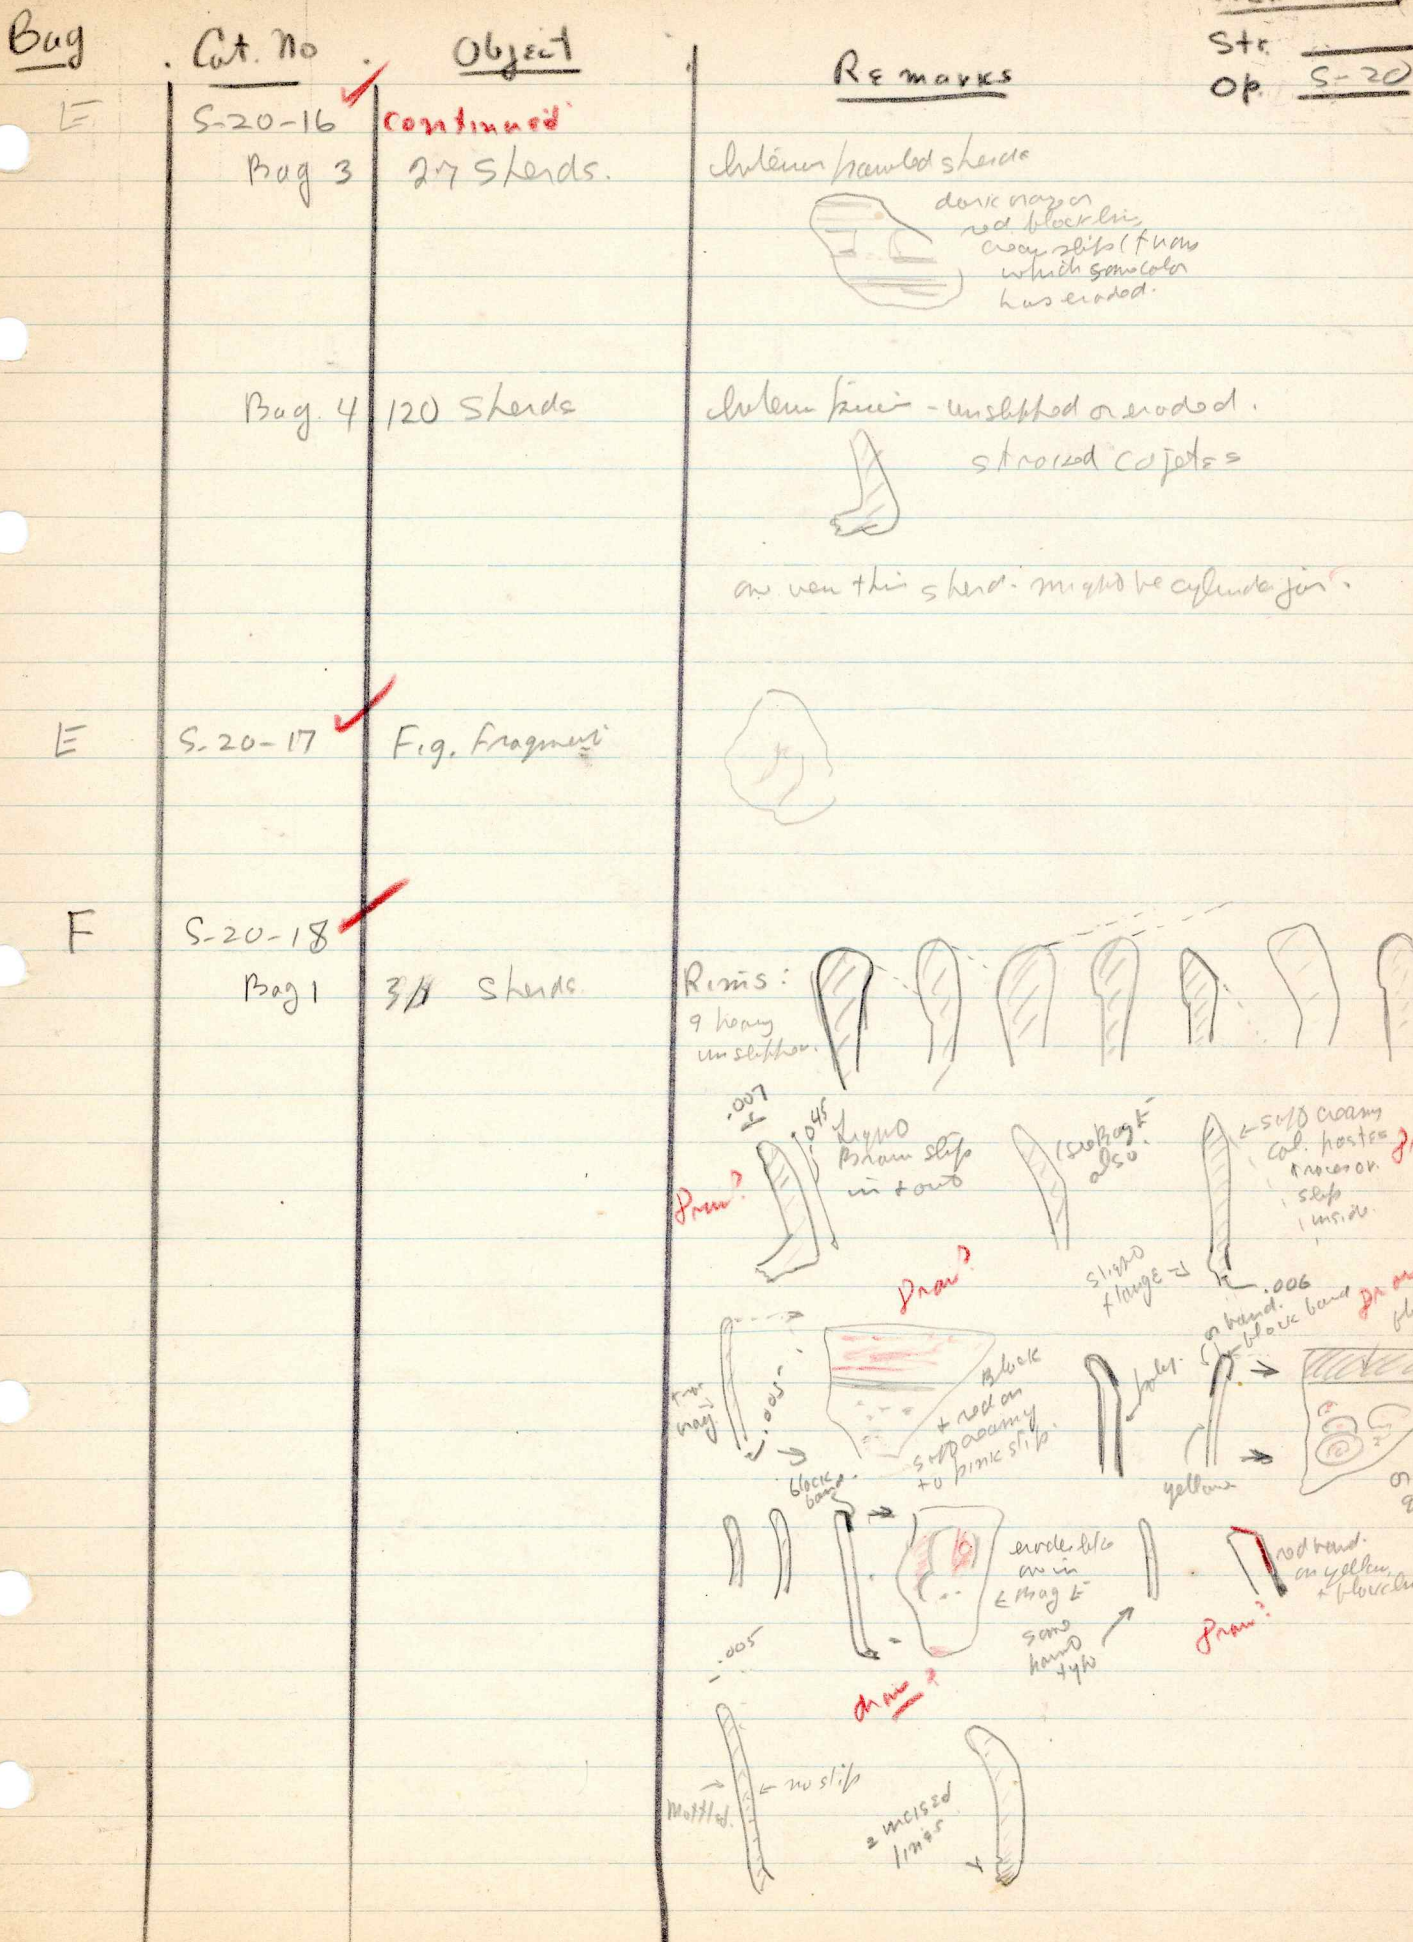 Bag Cat. No Object Remarks
Str.
Op. S-20
E S-20-16 continued
Bag 3 27 Sherds. sherds
dark orange or
red block line,
cream slip (from
which some color
has eroded.
Bag. 4 120 Sherds - unslipped or eroded.
striated cajetes
one very thin sherd - might be cylinder jar.
E S-20-17 Fig. Fragment
F S-20-18
Bag 1 Sherds. Rims:
9 heavy
unslipped.
.007
.045
Light
Brown slip
in + out
(see Bag E
also.
soft creamy
col. paste
traces or.
slip
inside.
Draw?
Draw?
slight
flange
.006
or band.
black band
.005
Black
+ red on
soft creamy
to pink slip.
yellow
black
band.
erode like
one in
Bag E
same
type
red band.
on yellow,
Draw?
.005
draw?
Mottled.
no slip
2 incised
lines